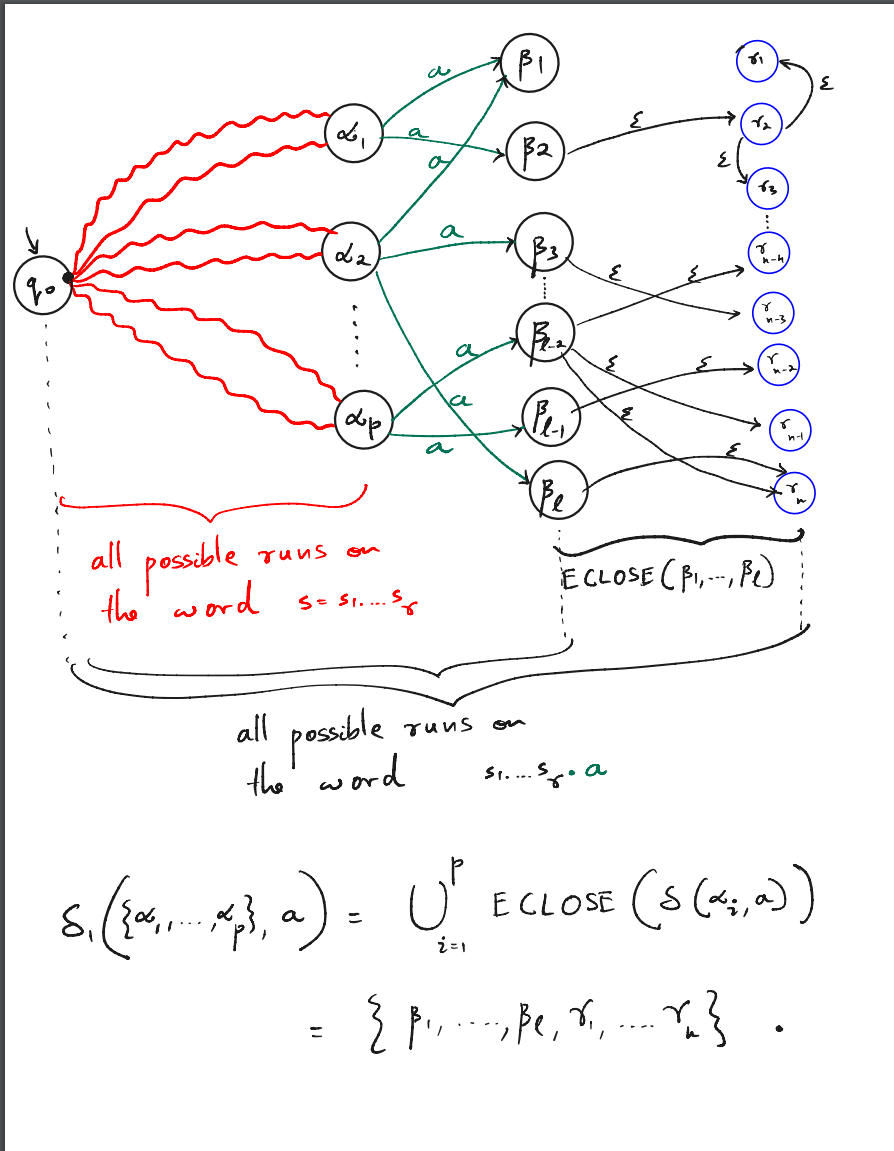 q₀
α₁
α₂
αₚ
a
a
a
a
a
a
a
β1
β2
β3
βℓ₋₂
βℓ₋₁
βℓ
ε
ε
ε
ε
ε
ε
ε
ε
ε
γ₁
γ₂
γ₃
γₙ₋₄
γₙ₋₃
γₙ₋₂
γₙ₋₁
γₙ
all possible runs on
the word s = s₁....sᵣ
ECLOSE(β₁,...,βℓ)
all possible runs on
the word s₁....sᵣ·a
δ₁({α₁,....,αₚ}, a) = ⋃ᵢ₌₁ᵖ ECLOSE(δ(αᵢ,a))
= {β₁,.....,βℓ,γ₁,.....γₙ}.